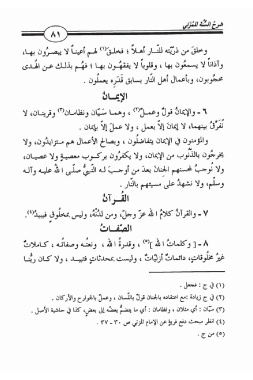 شرح السُّنَّة للمُزني
٨١
وخلقَ من ذرّيّته للنّار أهلاً، فخلقَ(١) لهم أعيناً لا يبصرون بها،
وآذاناً لا يسمعون بها، وقلوباً لا يفقهون بها؛ فهُم بذلك عن الهدى
محجوبون، وبأعمال أهل النّار بسابق قَدَرِه يعملون.
الإيمَان
٦ - والإيمانُ قولٌ وعملٌ(٢)، وهما سيّان ونظامان(٣) وقرينان، لا
نُفرِّقُ بينهما، لا إيمانَ إلاّ بعملٍ، ولا عملَ إلاّ بإيمانٍ.
والمؤمنون في الإيمان يتفاضلُون، وبصالح الأعمال هم متزايدُون، ولا
يخرجُون بالذّنوب من الإيمان، ولا يكفّرُون بركوب معصيةٍ ولا عصيان،
ولا نُوجبُ لمحسنهم الجنانَ بعدَ من أوجبَ له النّبيُّ صلّى الله عليه وآله
وسلّم، ولا نشهدُ على مسيئهم بالنّار.
القُرآن
٧ - والقرآنُ كلامُ الله عزّ وجلّ، ومن لدنْهُ، وليس بمخلوقٍ فيبيدُ(٤).
الصِّفَات
٨ - [ وكلماتُ الله ](٥)، وقدرةُ الله، ونعتُه وصفاتُه؛ كاملاتٌ
غيرُ مخلُوقاتٍ، دائماتٌ أزليّاتٌ، وليست بمحدثاتٍ فتبيد، ولا كان ربُّنا
(١) في ج : فجعل.
(٢) في ج زيادة : مع اعتقاده بالجنان قولٌ باللّسان، وعملٌ بالجوارح والأركان.
(٣) سيّان : أي مثلان، ونظامان : أي ما ينضمُّ بعضُه إلى بعض، كذا في حاشية الأصل.
(٤) انظر مبحث دفع فريةٍ عن الإمام المزني ص ٣٠ - ٣٧.
(٥) من ج.